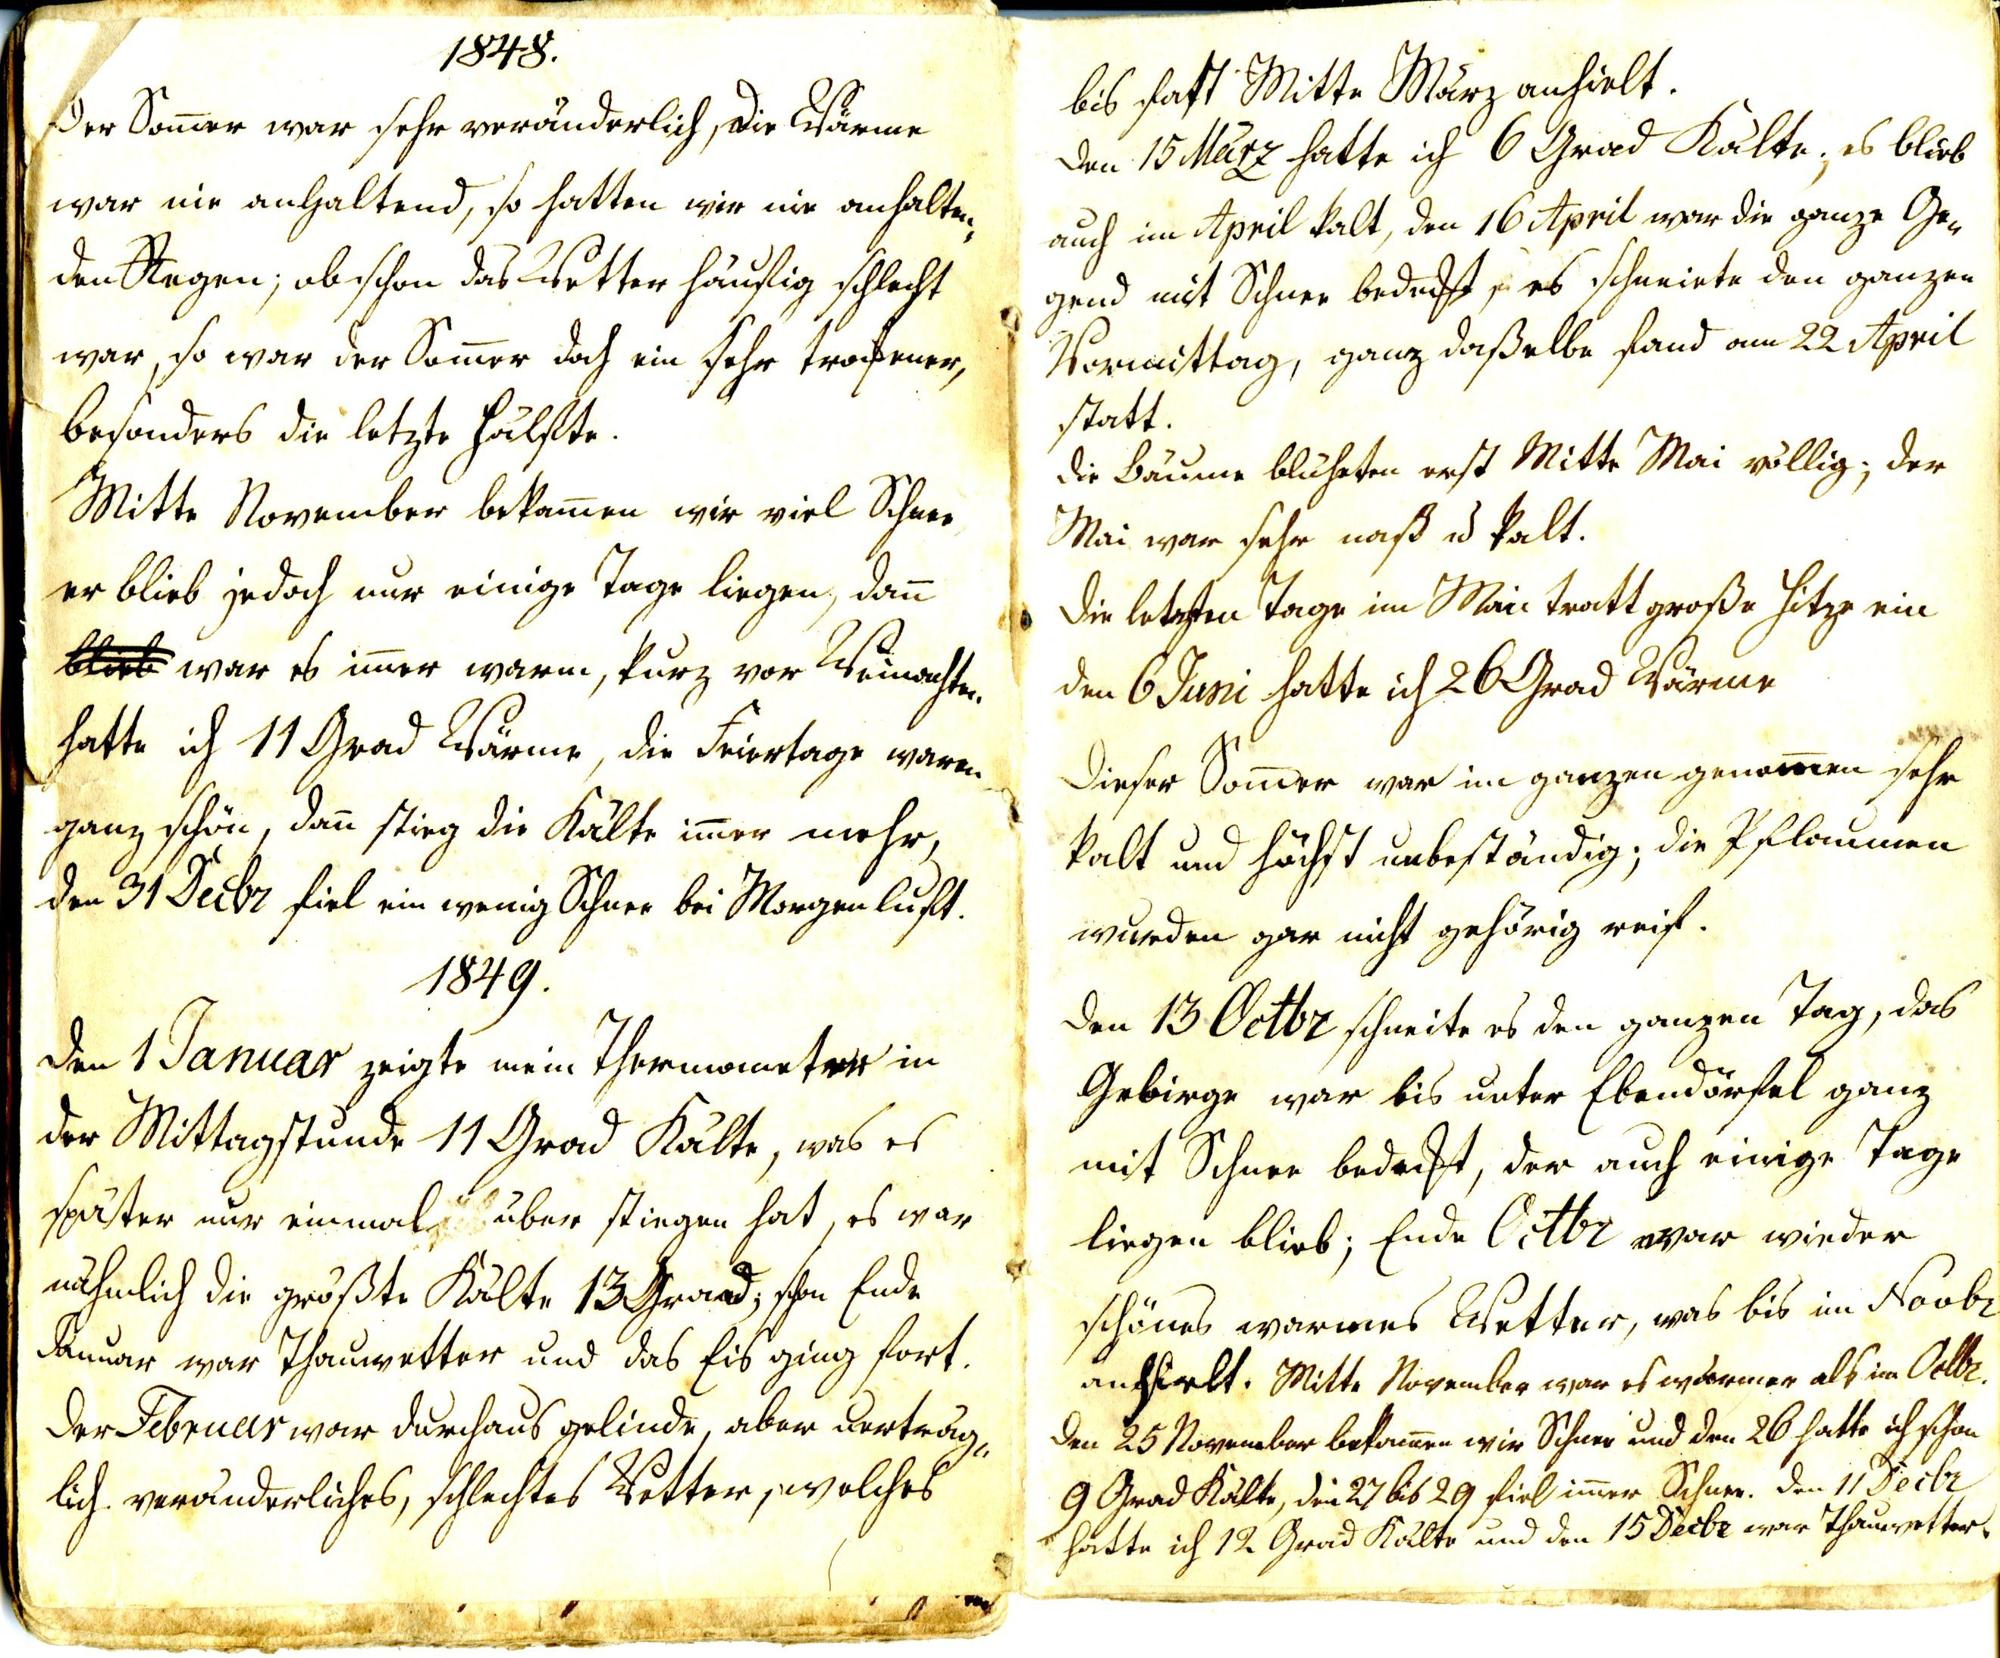 1848.
Der Som̅er war sehr veränderlich, die Wärme
war nie anhaltend, so hatten wir nie anhalten„
den Regen; obschon das Wetter häufig schlecht
war, so war der Som̅er doch ein sehr trockener,
besonders die letzte Hälfte.
Mitte November bekam̅en wir viel Schnee
er blieb jedoch nur einige Tage liegen, dan̅
blieb war es im̅er warm, kurz vor Weinachten
hatte ich 11 Grad Wärme, die Feiertage waren
ganz schön, dan̅ stieg die Kälte im̅er mehr,
den 31 Decbr fiel ein wenig Schnee bei Morgenluft.
1849.
Den 1 Januar zeigte mein Thermometer in
der Mittagstunde 11 Grad Kälte, was es
später nur einmal über stiegen hat, es war
nähmlich die größte Kälte 13 Grad; schon Ende
Januar war Thauwetter und das Eis ging fort.
Der Februar war durchaus gelinde, aber unerträg„
lich veränderliches, schlechtes Wetter, welches
bis fast Mitte März anhielt.
Den 15 März hatte ich 6 Grad Kälte; es blieb
auch im April kalt, den 16 April war die ganze Ge„
gend mit Schnee bedeckt, es schneiete den ganzen
Vormittag, ganz daßelbe fand am 22 April
statt.
Die Bäume blüheten erst Mitte Mai völlig; der
Mai war sehr naß u kalt.
Die letzten Tage im Mai tratt große Hitze ein
den 6 Juni hatte ich 26 Grad Wärme
Dieser Som̅er war im ganzen genom̅en sehr
kalt und höchst unbeständig; die Pflaumen
wurden gar nicht gehörig reif.
Den 13 Octbr schneite es den ganzen Tag, das
Gebirge war bis unter Ebendörfel ganz
mit Schnee bedeckt, der auch einige Tage
liegen blieb; Ende Octbr war wieder
schönes warmes Wetter, was bis im Novbr
anhielt. Mitte November war es wärmer als im Octbr.
Den 25 November bekam̅en wir Schnee und den 26 hatte ich schon
9 Grad Kälte, den 27 bis 29 fiel im̅er Schnee. Den 11 Decbr
hatte ich 12 Grad Kälte und den 15 Decbr war Thauwetter.